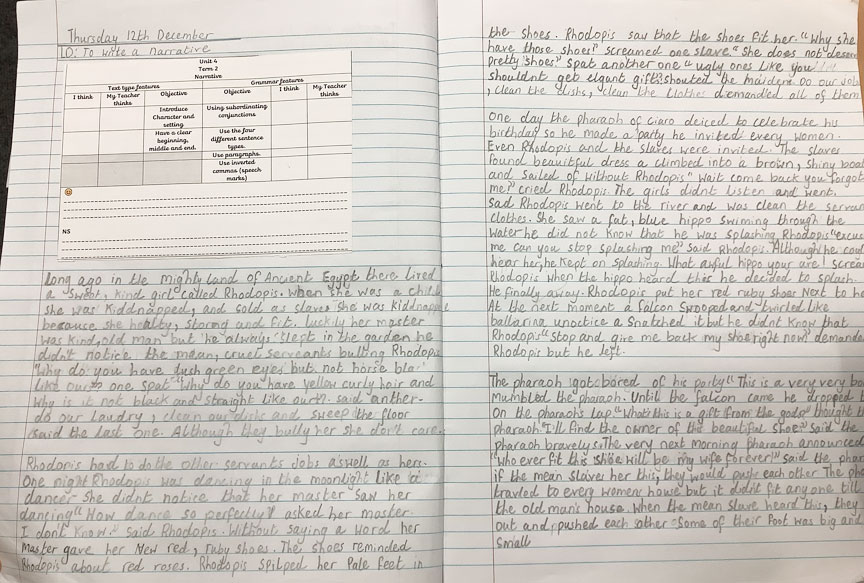 Thursday 12th December
LO: To write a narrative
Unit 4
Term 2
Narrative
Text type features
Grammar features
I think
My Teacher thinks
Objective
Objective
I think
My Teacher thinks
Introduce Character and setting
Using subordinating conjunctions
Have a clear beginning, middle and end.
Use the four different sentence types.
Use paragraphs.
Use inverted commas (speech marks)
NS
Long ago in the mighty land of Ancient Egypt there lived
a sweet, kind girl called Rhodopis. When she was a child
she was Kiddnapped, and sold as slave. She was kiddnapped
because she healty, storng and fit. luckily her master
was kind, old man but he always slept in the garden he
didn't notice the mean, cruel servents bulling Rhodopis
"Why do you have lush green eyes but not horse
like ours" one spat "Why do you have yellow curly hair and
why is it not black and straight like ours. said anther.
do our laundry, clean our dish and sweep the floor
said the last one. Although they bully her she don't care.
Rhodopis had to do the other servants jobs aswell as hers.
One night Rhodopis was dancing in the moonlight like a
dancer she didnt notice that her master saw her
dancing "How dance so perfectly" asked her master.
I dont Know." said Rhodopis. Without saying a word her
master gave her New red, ruby shoes. The shoes reminded
Rhodopis about red roses. Rhodopis her Pale feet in
the shoes. Rhodopis saw that the shoes fit her. "Why she
have those shoes!" screamed one slave. "She does not
pretty shoes" spat another one "ugly ones like you
shouldnt get elgant gift? shouted the maidens Do our
, clean the dishs, clean the clothes demandled all of them
One day the pharaoh of Ciaro deiced to celebrate his
birthday so he made a party he invited every women.
Even Rhodopis and the slaves were invited. The slaves
found beauitful dress a climbed into a brown, shiny boat
and sailed of without Rhodopis "Wait come back you forgot
me?" cried Rhodopis. The girls didnt listen and went.
Sad Rhodopis went to the river and was clean the
clothes. She saw a fat, blue hippo swiming through the
water he did not know that he was splashing Rhodopis
me can you stop splashing me" said Rhodopis. Although he
hear her, he kept on splashing. What awful hippo your are!
Rhodopis when the hippo heard this he decided to splash.
He finally away. Rhodopis put her red ruby shoes Next to
At the next moment a falcon swooped and twirled like
ballarina unoctice a Snatched it but he didnt know that
Rhodopis "stop and give me back my shoe right now
Rhodopis but he left.
The pharaoh got bored of his party "This is a very very
Mumbled the pharaoh. Until the falcon came he dropped
On the pharaohs lap "What this is a gift from the gods" thought
pharaoh "I'll find the owner of the beautiful shoe" said the
pharaoh bravely. The very next morning pharaoh announced
"Who ever fit this shoe will be my wife forever" said the
if the mean slaves her this, they would push each other The
travled to every women house but it didnt fit any one
the old man's house. When the mean slave heard this, they
out and pushed each other some of their Foot was big and
small